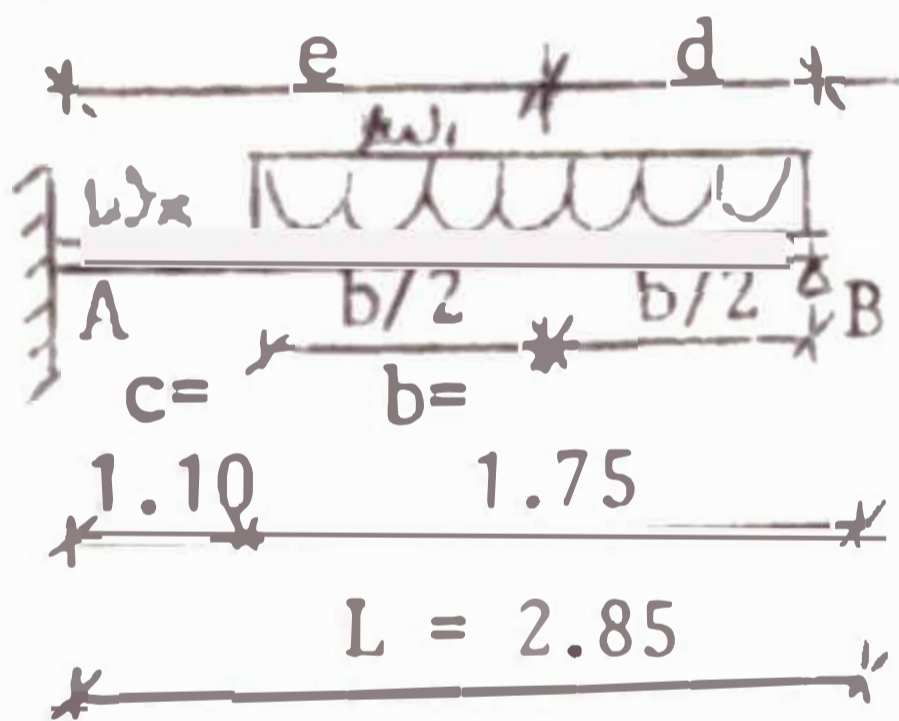 e d
A b/2 b/2 B
c= b=
1.10 1.75
L = 2.85